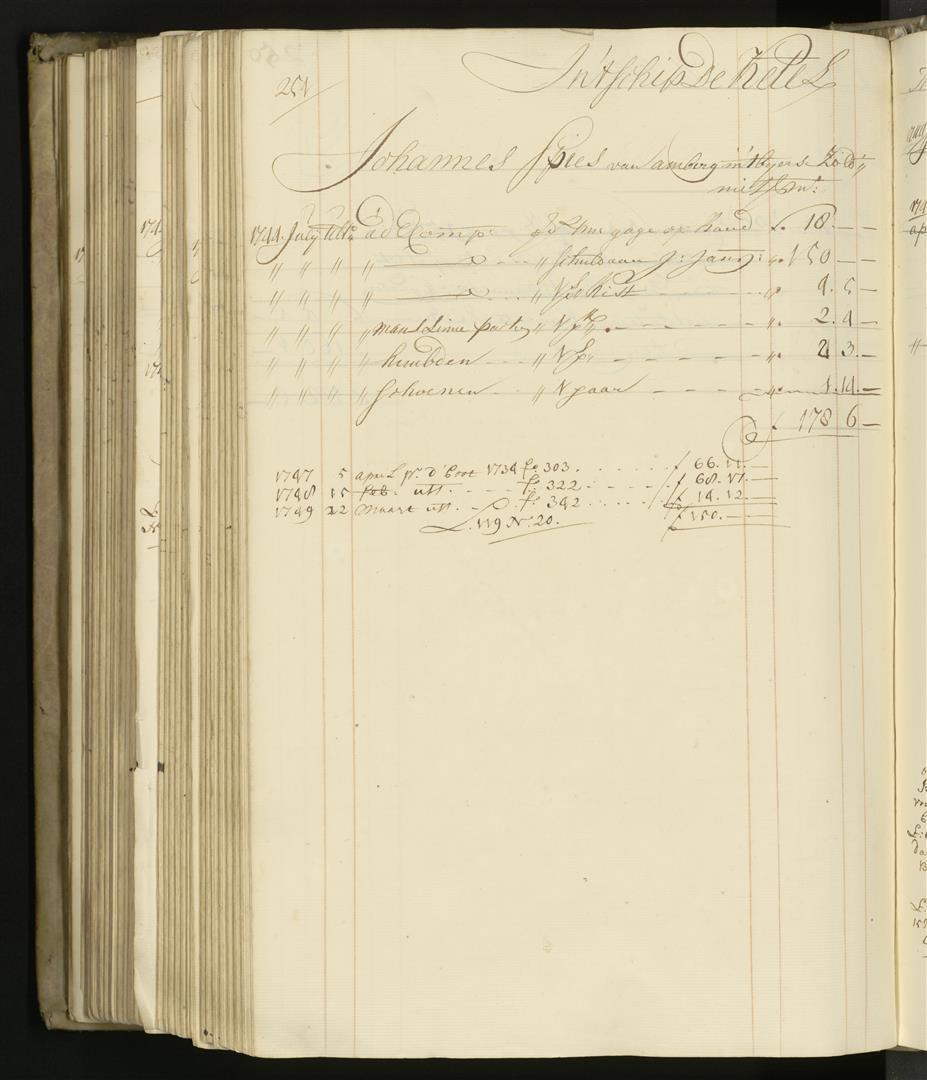 251
In't schip De Ketel
Johannes Spies van Amberg in't Byers Zold:
met f m:
1744 July Ult:o a d' Comp: p:r 2 m: gage op hand f. 18. — —
" " " " — " Schuld aan J: Jans: ". 150 — —
" " " " — " 1 p:s kist ". 4. 5 —
" " " " " mans Linne packje " 1 p:s ". 2. 4 —
" " " " " hembden " 1 p:s ". 2 3. —
" " " " " schoenen " 1 paar ". 1. 14. —
f 178 6 —
1747 5 april p:r d' boot 1734 f:o 303. f 66. 11. —
1748 15 feb: utt. f:o 322 f 68. 17. —
1749 22 maart utt. f:o 342 f 14. 12. —
L. 119 N:o 20. f 150. —